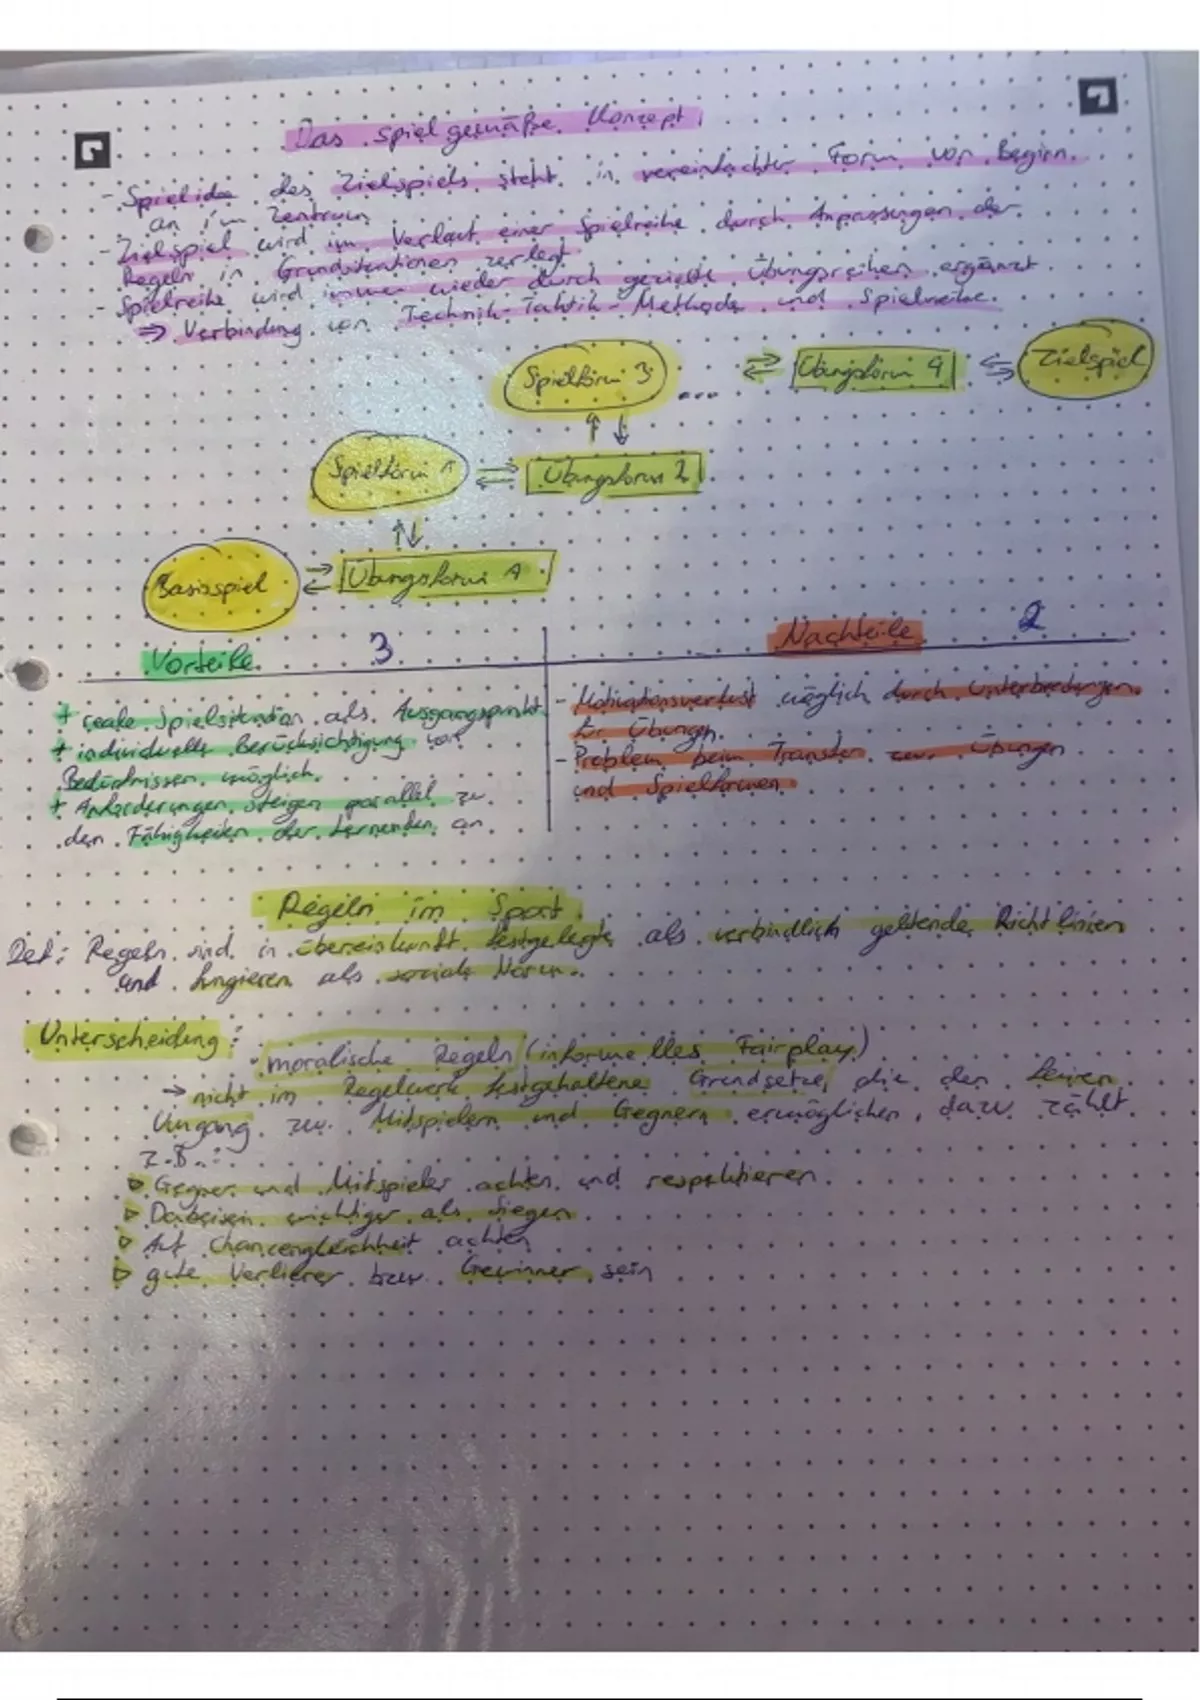 Das spielgemäße Konzept
- Spielidee des Zielspiels steht in vereinfachter Form von Beginn
an im Zentrum
- Zielspiel wird im Verlauf einer Spielreihe durch Anpassungen der
Regeln in Grundsituationen zerlegt
- Spielreihe wird immer wieder durch gezielte Übungsreihen ergänzt
⇒ Verbindung von Technik-Taktik-Methode und Spielreihe.
Spielform 3 ... ⇄ Übungsform 4 ⇆ Zielspiel
↑↓
Spielform 1 ⇄ Übungsform 2
↑↓
Basisspiel ⇄ Übungsform 1
Vorteile 3
Nachteile 2
+ reale Spielsituation als Ausgangspunkt
+ individuelle Berücksichtigung von
Bedürfnissen möglich
+ Anforderungen steigen parallel zu
den Fähigkeiten der Lernenden an
- Motivationsverlust möglich durch Unterbrechungen
für Übungen
- Problem beim Transfer zur Übungen
und Spielformen
Regeln im Sport
Def: Regeln sind in Übereinkunft festgelegte als verbindlich geltende Richtlinien
und fungieren als soziale Norm.
Unterscheidung:
• moralische Regeln (informelles Fairplay)
→ nicht im Regelwerk festgehaltene Grundsetze, die den fairen
Umgang zu Mitspielern und Gegnern ermöglichen, dazu zählt
z.B.:
▷ Gegner und Mitspieler achten und respektieren
▷ Dabeisein wichtiger als Siegen
▷ Auf Chancengleichheit achten
▷ gute Verlierer bzw. Gewinner sein